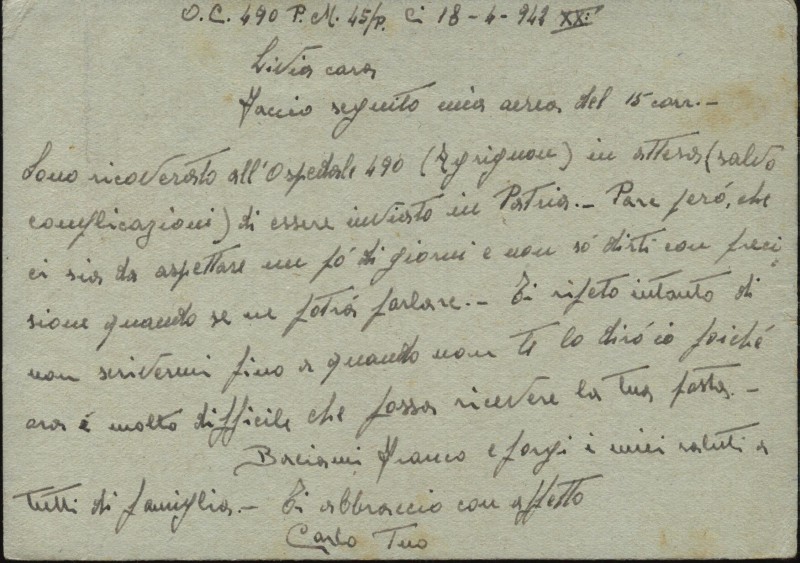 O.C. 490 P.M. 45/P. li 18-4-942 XX:
Livia cara
Faccio seguito mia aerea del 15 corr.-
Sono ricoverato all'Ospedale 490 (Agrignon) in attesa (salvo
complicazioni) di essere inviato in Patria.- Pare però, che
ci sia da aspettare un pó di giorni e non só dirti con preci
sione quando se ne potrá parlare.- Ti ripeto intanto di
non scrivermi fino a quando non te lo diró io poiché
ora é molto difficile che possa ricevere la tua posta.-
Baciami Franco e porgi i miei saluti a
tutti di famiglia.- Ti abbraccio con affetto
Carlo Tuo